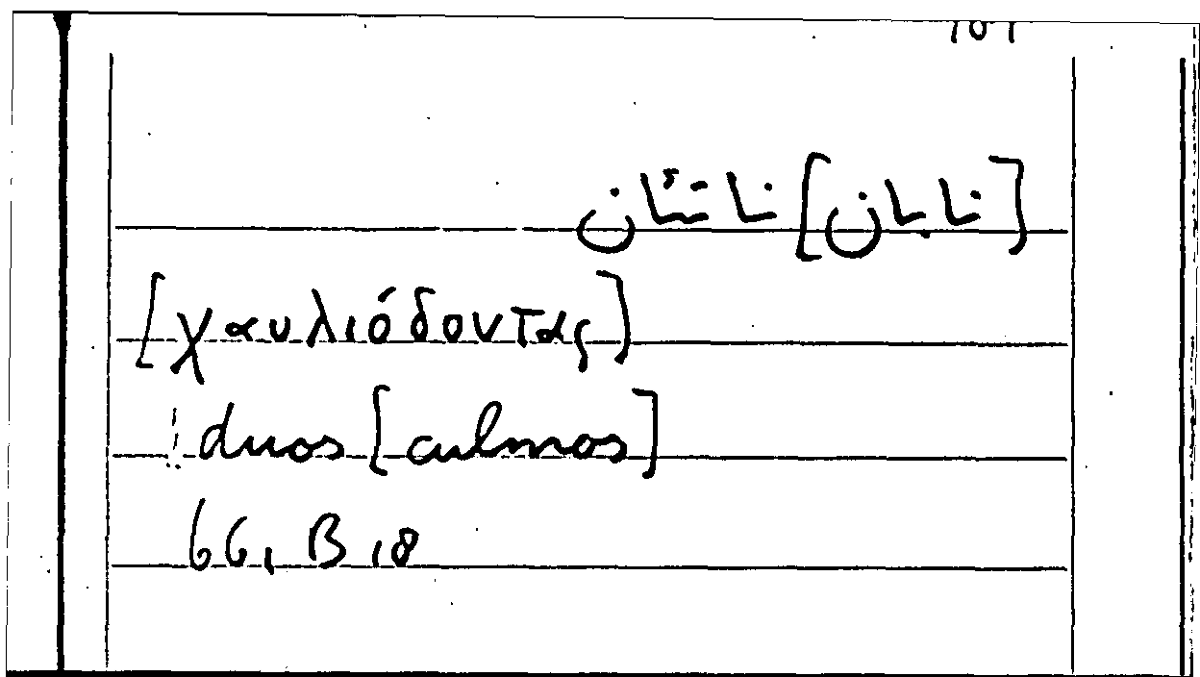 [نابان] ناتئان
[χαυλιόδοντας]
duos [culmos]
66, B 18